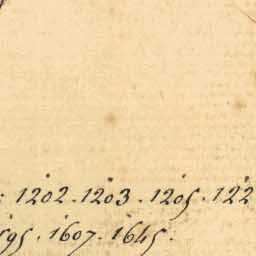 : 1202 . 1203 . 1205 . 122
595 . 1607 . 1645 .